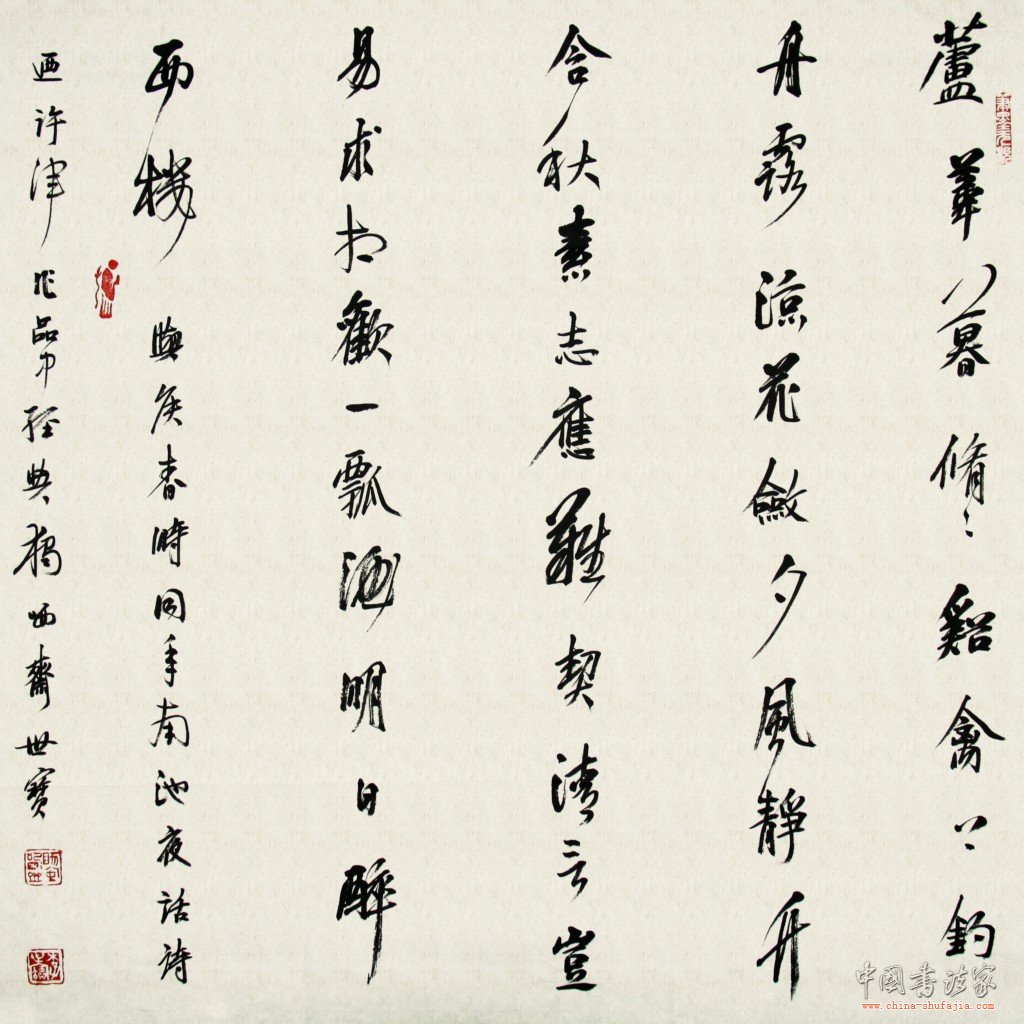 蘆葦暮脩〻谿禽上釣
舟露涼花斂夕風靜竹
含秋素志應難契清言豈
易求相歡一瓢酒明日醉
西樓
與侯春時同年南池夜話詩
迺許渾作品中經典獨哂齋世寶
中國書法家
www.china-shufajia.com